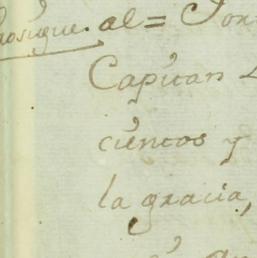 Prosigue. al=
Capitan
cientos y
la gracia,